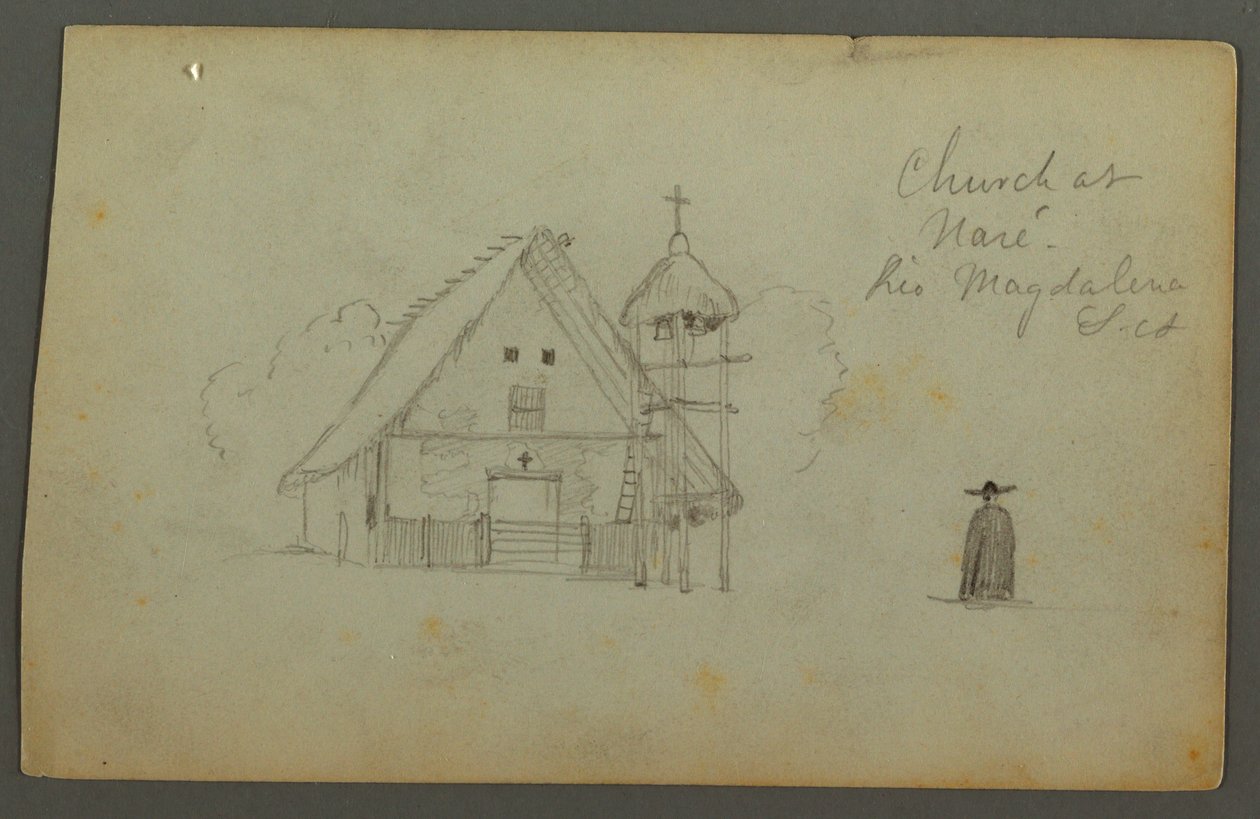 Church at
Naré-
Rio Magdalena